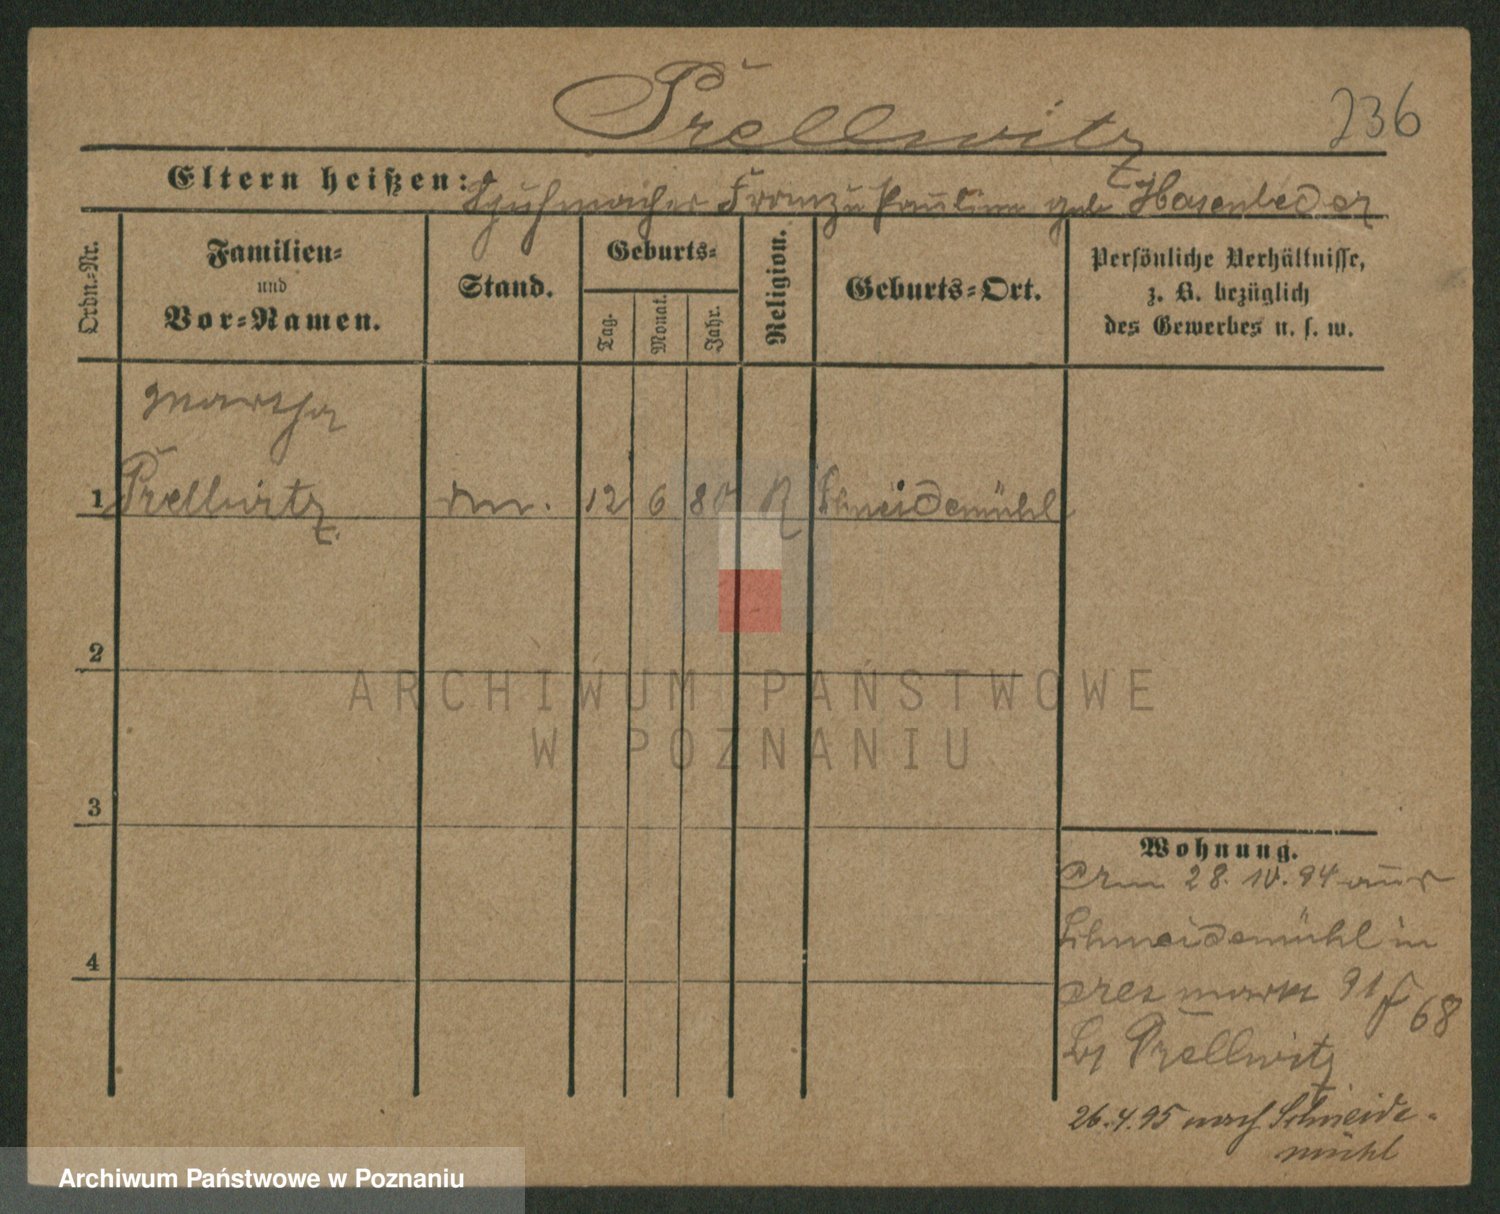 Prellwitz
236
Eltern heißen: Schuhmacher Franz u Pauline geb Hasenleder
Ordn.-Nr.
Familien-
und
Vor-Namen.
Stand.
Geburts-
Tag.
Monat.
Jahr.
Religion.
Geburts-Ort.
Persönliche Verhältnisse,
z. B. bezüglich
des Gewerbes u. s. w.
Martha
1 Prellwitz 12 6 80 Schneidemühl
2
3
4
Wohnung.
28. 10. 94 aus
Schneidemühl in
markt 91
68
Prellwitz
26.4.95 nach Schneide-
mühl
ARCHIWUM PAŃSTWOWE
W POZNANIU
Archiwum Państwowe w Poznaniu